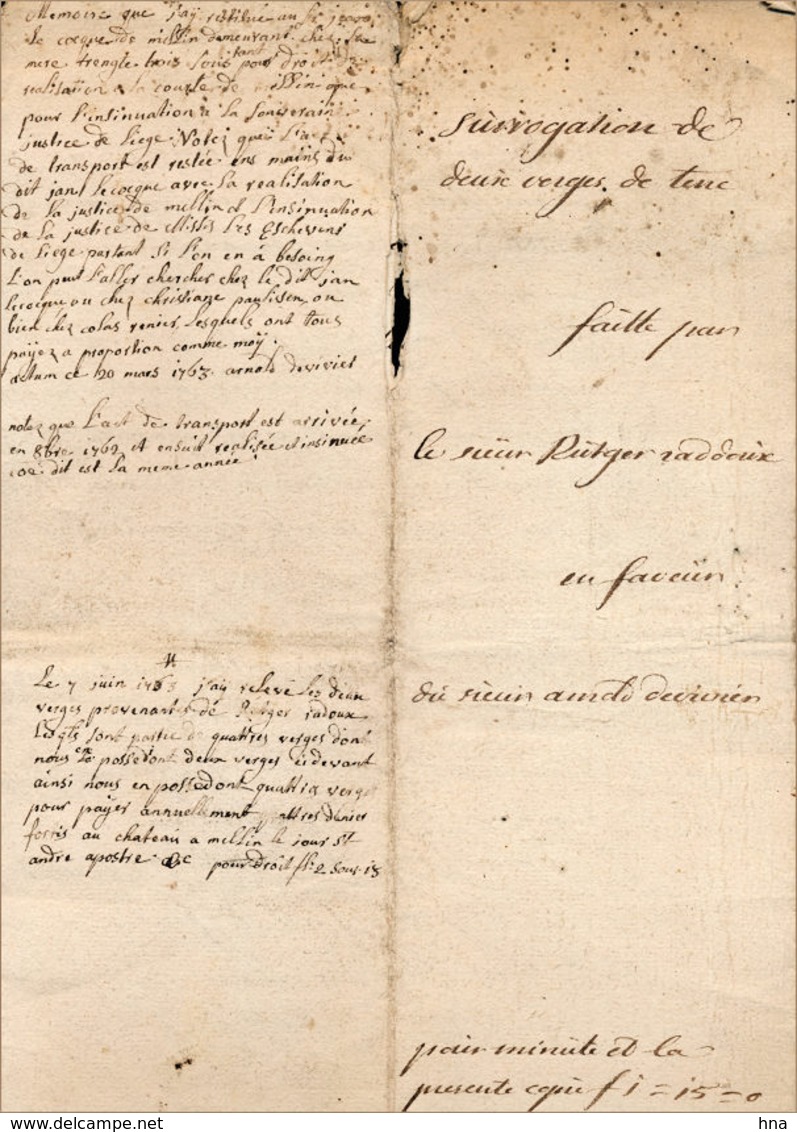 Memoire que j'aÿ restitué au Sr
le cocque de millin demeurant chez
mere trengle trois sous tant pour droit de
realisation a la courte de millin que
pour l'insinuation a la souverain
justice de Liege Notez que l'act
de transport est restée ens mains du
dit jan lecocque avec la realisation
de la justice de millin et l'insinuation
de la justice de Mssrs les Eschevins
de Liege partant si l'on en à besoing
l'on peut l'aller chercher chez le dit jan
lecocque ou chez christiane paulissen ou
bien chez colas renier, lesquels ont tous
païez a proportion comme moÿ.
actum ce 20 mars 1763. arnold deviviet
notez que l'act de transport est arrivée
en 8bre 1762 et ensuit realisée et insinuee
coe dit est la meme année
Le 7 juin 1763 j'aÿ relevé les deux
verges provenantes de Rutger radoux
lesqls sont partie de quattres verges dont
nous possedont deux verges cidevant
ainsi nous en possedont quattres verges
pour payer annuellement quattres denier
forts au chateau a millin le jour St
andre apostre pour droit fls 2 sous 15
surrogation de
deux verges de terre
faitte par
le sieur Rütger raddoux
en faveür
dü sieür arnold devivier
pair minüte et la
presente copie f 1 = 15 = 0
hna